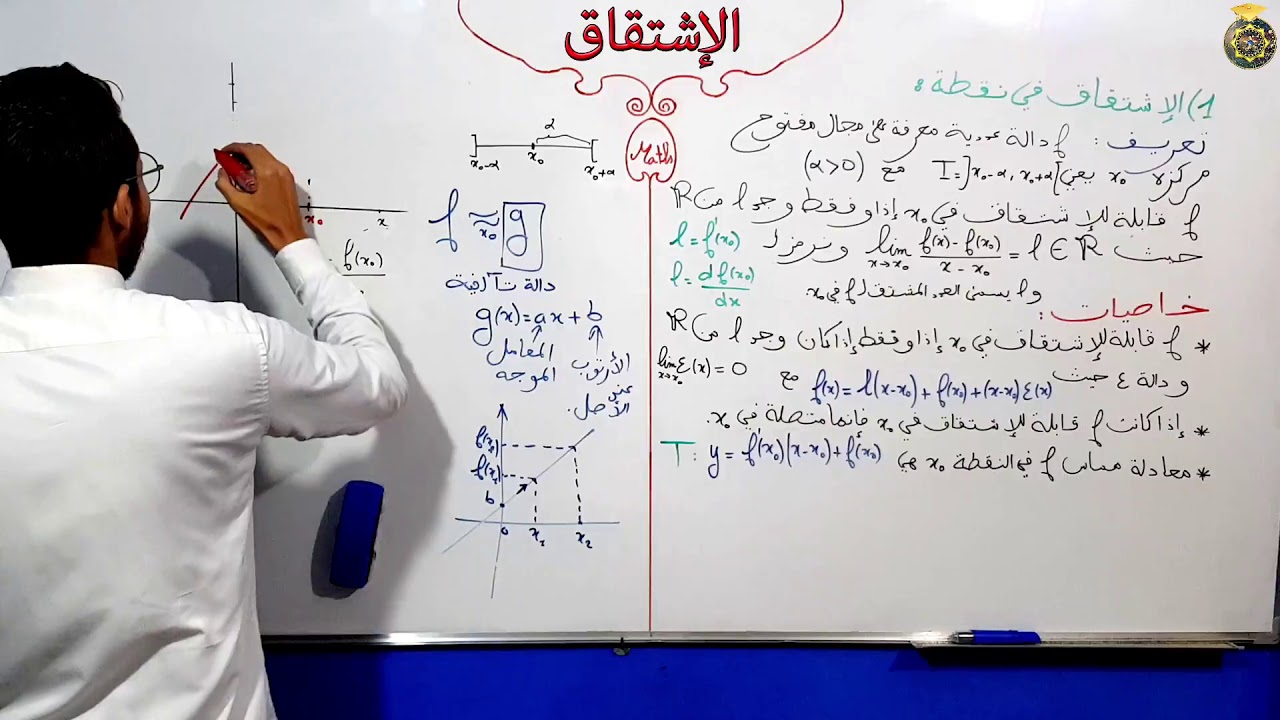 الإشتقاق
Maths
1) الإشتقاق في نقطة :
تعريف : f دالة عددية معرفة على مجال مفتوح
مركزه x₀ يعني I = ]x₀-α, x₀+α[ مع (α>0)
f قابلة للإشتقاق في x₀ إذا وفقط وجد l من ℝ
حيث lim x→x₀ f(x)-f(x₀) / x-x₀ = l ∈ ℝ ونرمز l
l = f'(x₀)
l = df(x₀)/dx
و l يسمى العدد المشتق ل f في x₀
خاصيات :
* f قابلة للإشتقاق في x₀ إذا وفقط إذا كان وجد l من ℝ
و دالة ε حيث f(x) = l(x-x₀) + f(x₀) + (x-x₀)ε(x) مع lim x→x₀ ε(x) = 0
* إذا كانت f قابلة للإشتقاق في x₀ فإنها متصلة في x₀.
* معادلة مماس f في النقطة x₀ هي T : y = f'(x₀)(x-x₀)+f(x₀)
α
x₀-α x₀ x₀+α
f ≈ x₀ g
دالة تآلفية
g(x) = ax + b
المعامل
الموجه
الأرتوب
عند
الأصل.
f(x₂)
f(x₁)
b
0 x₁ x₂
x₀ x
- f(x₀)